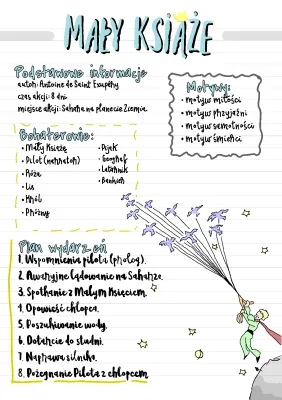 MAŁY KSIĄŻE
Podstawowe informacje
autor: Antoine de Saint Exupéry
czas akcji: 8 dni
miejsce akcji: Sahara na planecie Ziemia.
Motywy:
• motyw miłości
• motyw przyjaźni
• motyw samotności
• motyw śmierci
Bohaterowie:
• Mały Książę
• Pilot (narrator)
• Róża
• Lis
• Król
• Próżny
• Pijak
• Geograf
• Latarnik
• Bankier
Plan wydarzeń
1. Wspomnienia pilota (prolog).
2. Awaryjne lądowanie na Saharze.
3. Spotkanie z Małym Księciem.
4. Opowieść chłopca.
5. Poszukiwanie wody.
6. Dotarcie do studni.
7. Naprawa silnika.
8. Pożegnanie Pilota z chłopcem